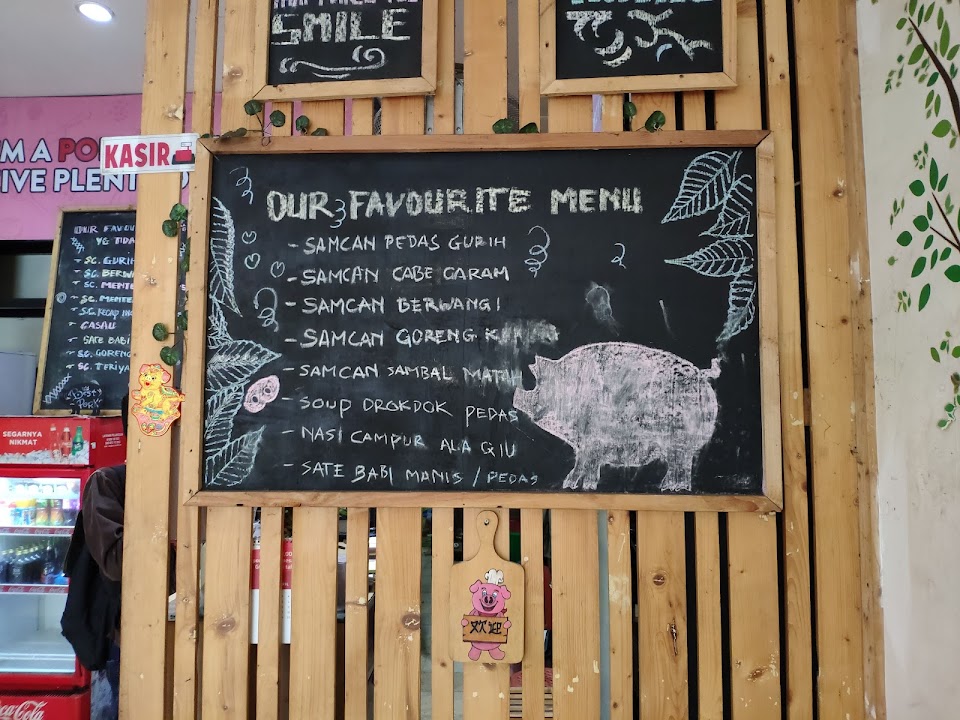 SMILE
KASIR
M A
IVE PLENT
OUR FAVOU
YG TIDA
- SC. GURIH
- SC. BERWA
- SC. MENTE
- SC. MENTE
- SATE BABI
- SC. GORENG
- SC. TERIYA
SEGARNYA
NIKMAT
Coca-Cola
OUR FAVOURITE MENU
- SAMCAN PEDAS GURIH
- SAMCAN CABE GARAM
- SAMCAN BERWANGI
- SAMCAN GORENG
- SAMCAN SAMBAL MATAH
- SOUP DROKDOK PEDAS
- NASI CAMPUR ALA QIU
- SATE BABI MANIS / PEDAS
欢迎